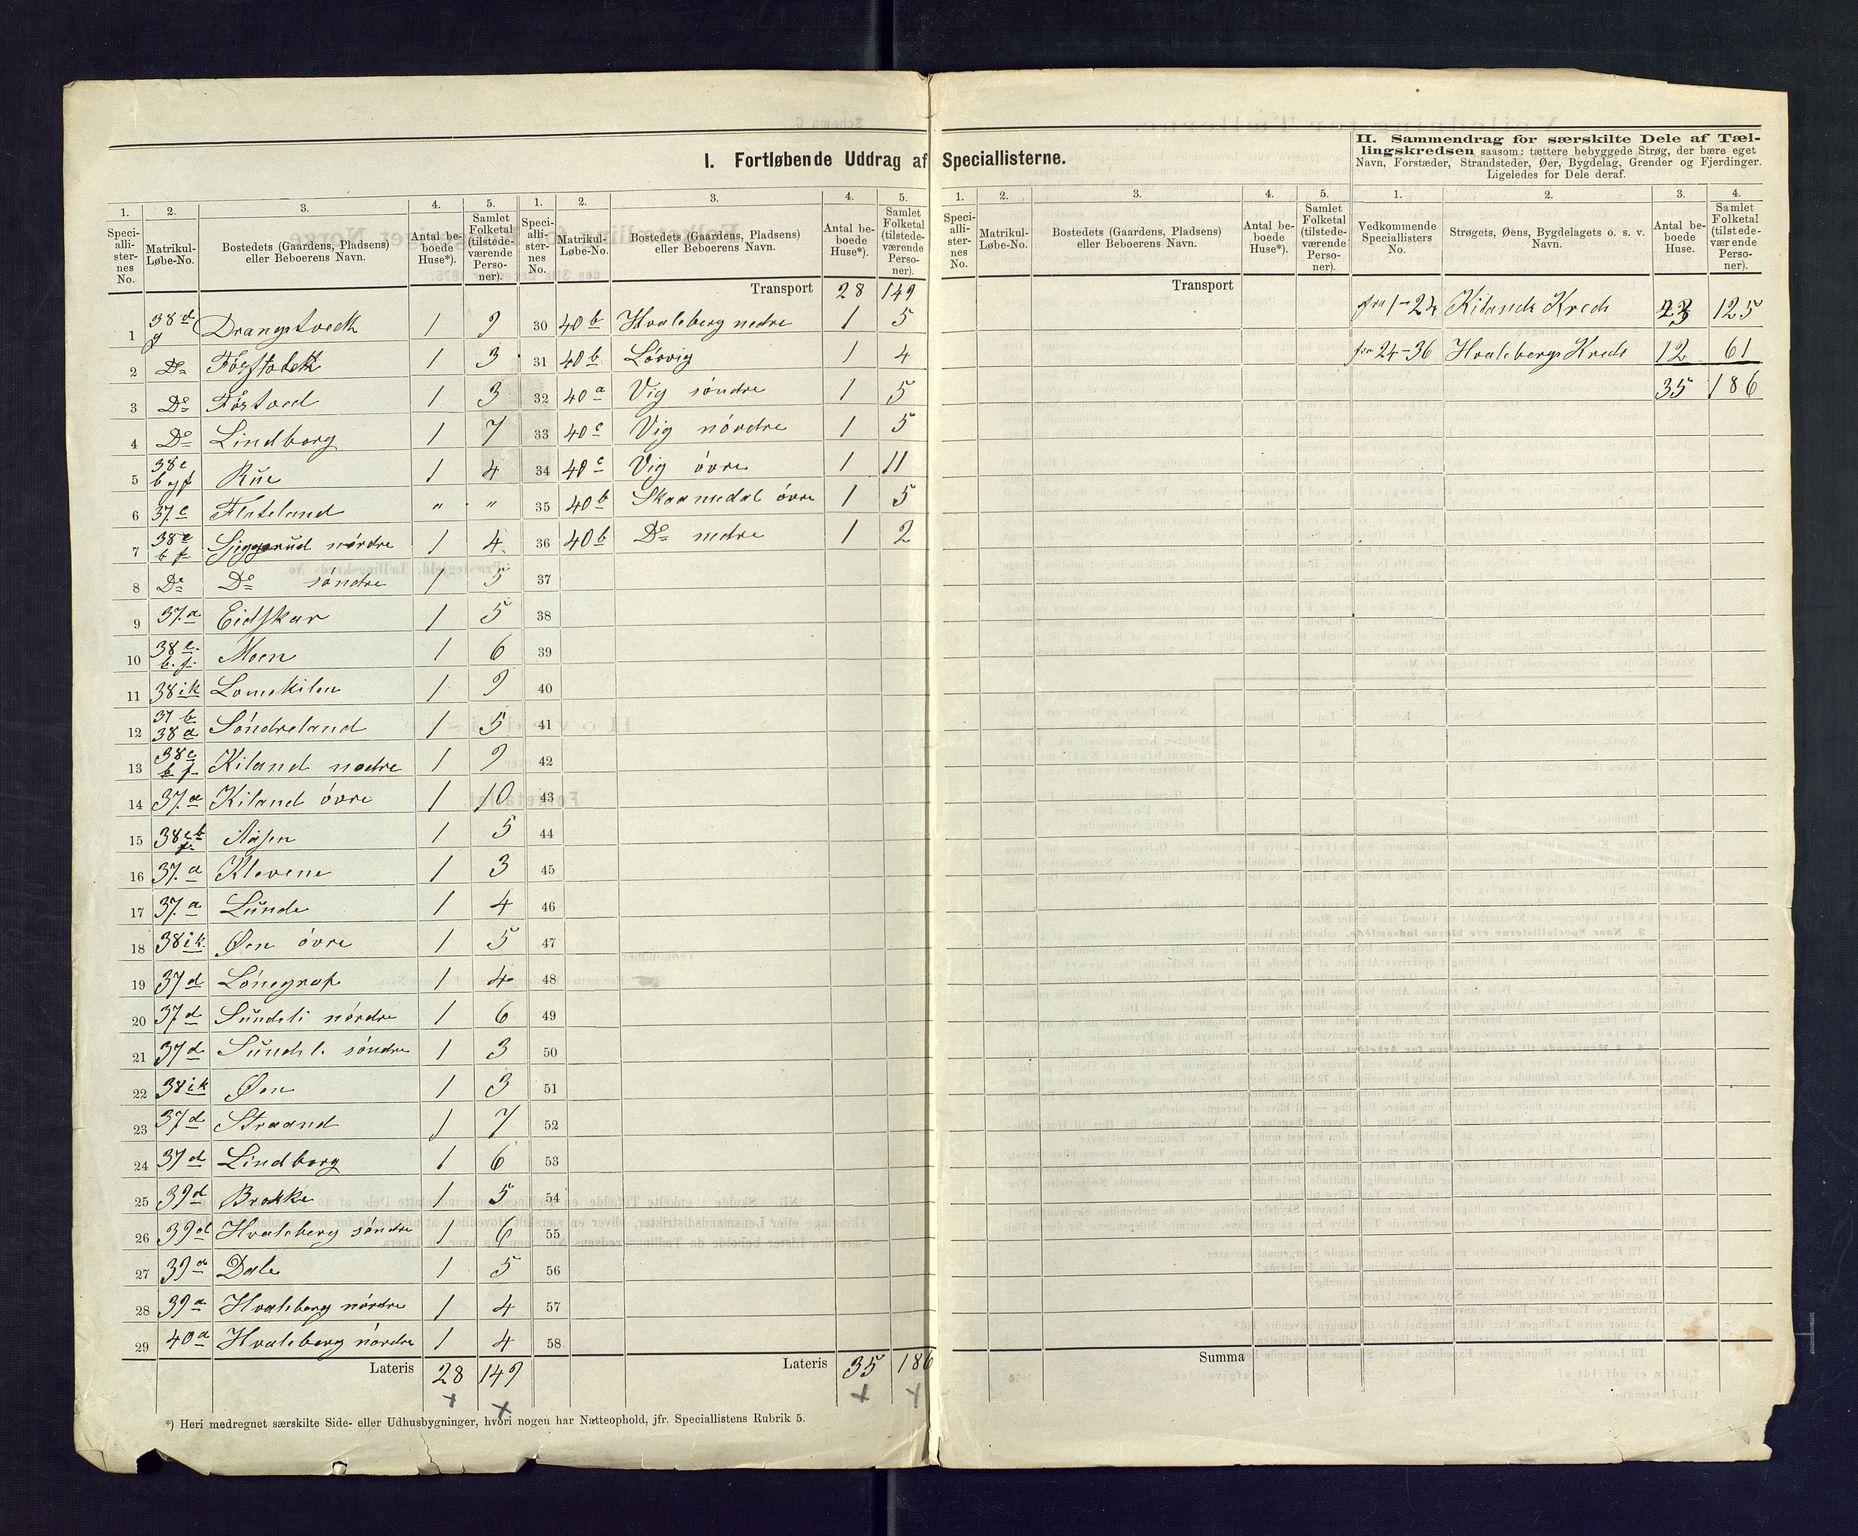 I. Fortløbende Uddrag af Speciallisterne.
II. Sammendrag for særskilte Dele af Tæl-
lingskredsen saasom: tættere bebyggede Strøg, der bære eget
Navn, Forstæder, Strandsteder, Øer, Bygdelag, Grender og Fjerdinger.
Ligeledes for Dele deraf.
1. 2. 3. 4. 5. 1. 2. 3. 4. 5. 1. 2. 3. 4. 5. 1. 2. 3. 4.
Speciallisternes No. Matrikul-Løbe-No. Bostedets (Gaardens, Pladsens) eller Beboerens Navn. Antal beboede Huse*). Samlet Folketal (tilstedeværende Personer).
Speciallisternes No. Matrikul-Løbe-No. Bostedets (Gaardens, Pladsens) eller Beboerens Navn. Antal beboede Huse*). Samlet Folketal (tilstedeværende Personer).
Speciallisternes No. Matrikul-Løbe-No. Bostedets (Gaardens, Pladsens) eller Beboerens Navn. Antal beboede Huse*). Samlet Folketal (tilstedeværende Personer).
Vedkommende Speciallisters No. Strøgets, Øens, Bygdelagets o. s. v. Navn. Antal beboede Huse. Samlet Folketal (tilstedeværende Personer).
1 38 d g Drangstvedt 1 9
2 Do 1 3
3 Do Föstved 1 3
4 Do Lindborg 1 7
5 38 e b og f Rue 1 4
6 37.c Flateland " "
7 38 e b f nördre 1 4
8 Do Do söndre 1 5
9 37.a Eidskar 1 5
10 38 e. b. f. Moen 1 6
11 38 i k Lonekilen 1 9
12 37 b 38 a Söndreland 1 5
13 38 e b f Kiland nedre 1 9
14 37.a Kiland övre 1 10
15 38 e b f Aasen 1 5
16 37.a Klevene 1 3
17 37.a Lunde 1 4
18 38 i k. Øen övre 1 5
19 37 d Lönegraf 1 4
20 37 d Sundli nördre 1 6
21 37 d Sundli söndre 1 3
22 38 i k Øen 1 3
23 37 d Straand 1 7
24 37 d Lindborg 1 6
25 39 d Brokke 1 5
26 39 d Hvaleberg söndre 1 6
27 39 a Dale 1 5
28 39 a Hvaleberg nördre 1 4
29 40 a Hvaleberg nördre 1 4
Lateris 28 149
Transport 28 149
30 40 b Hvaleberg nedre 1 5
31 40 b Lövvig 1 4
32 40 a Vig söndre 1 5
33 40 c Vig nördre 1 5
34 40 c Vig övre 1 11
35 40 b Skaamedal övre 1 5
36 40 b Do nedre 1 2
37
38
39
40
41
42
43
44
45
46
47
48
49
50
51
52
53
54
55
56
57
58
Lateris 35 186
Transport
Summa
fra 1-24 Kilands Kreds 23 125
fra 24-36 Hvalebergs Kreds 12 61
35 186
*) Heri medregnet særskilte Side- eller Udhusbygninger, hvori nogen har Natteophold, jfr. Speciallistens Rubrik 5.